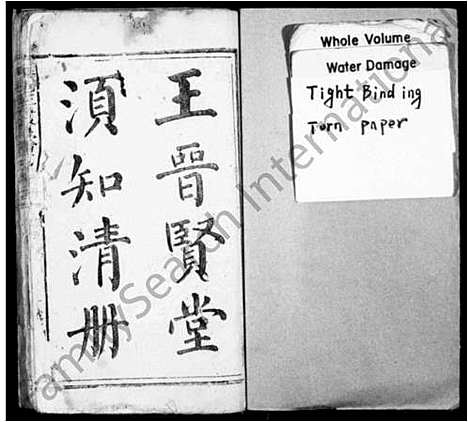 王晉賢堂
須知清册
Whole Volume
Water Damage
Tight Binding
Torn paper
amilySearch International